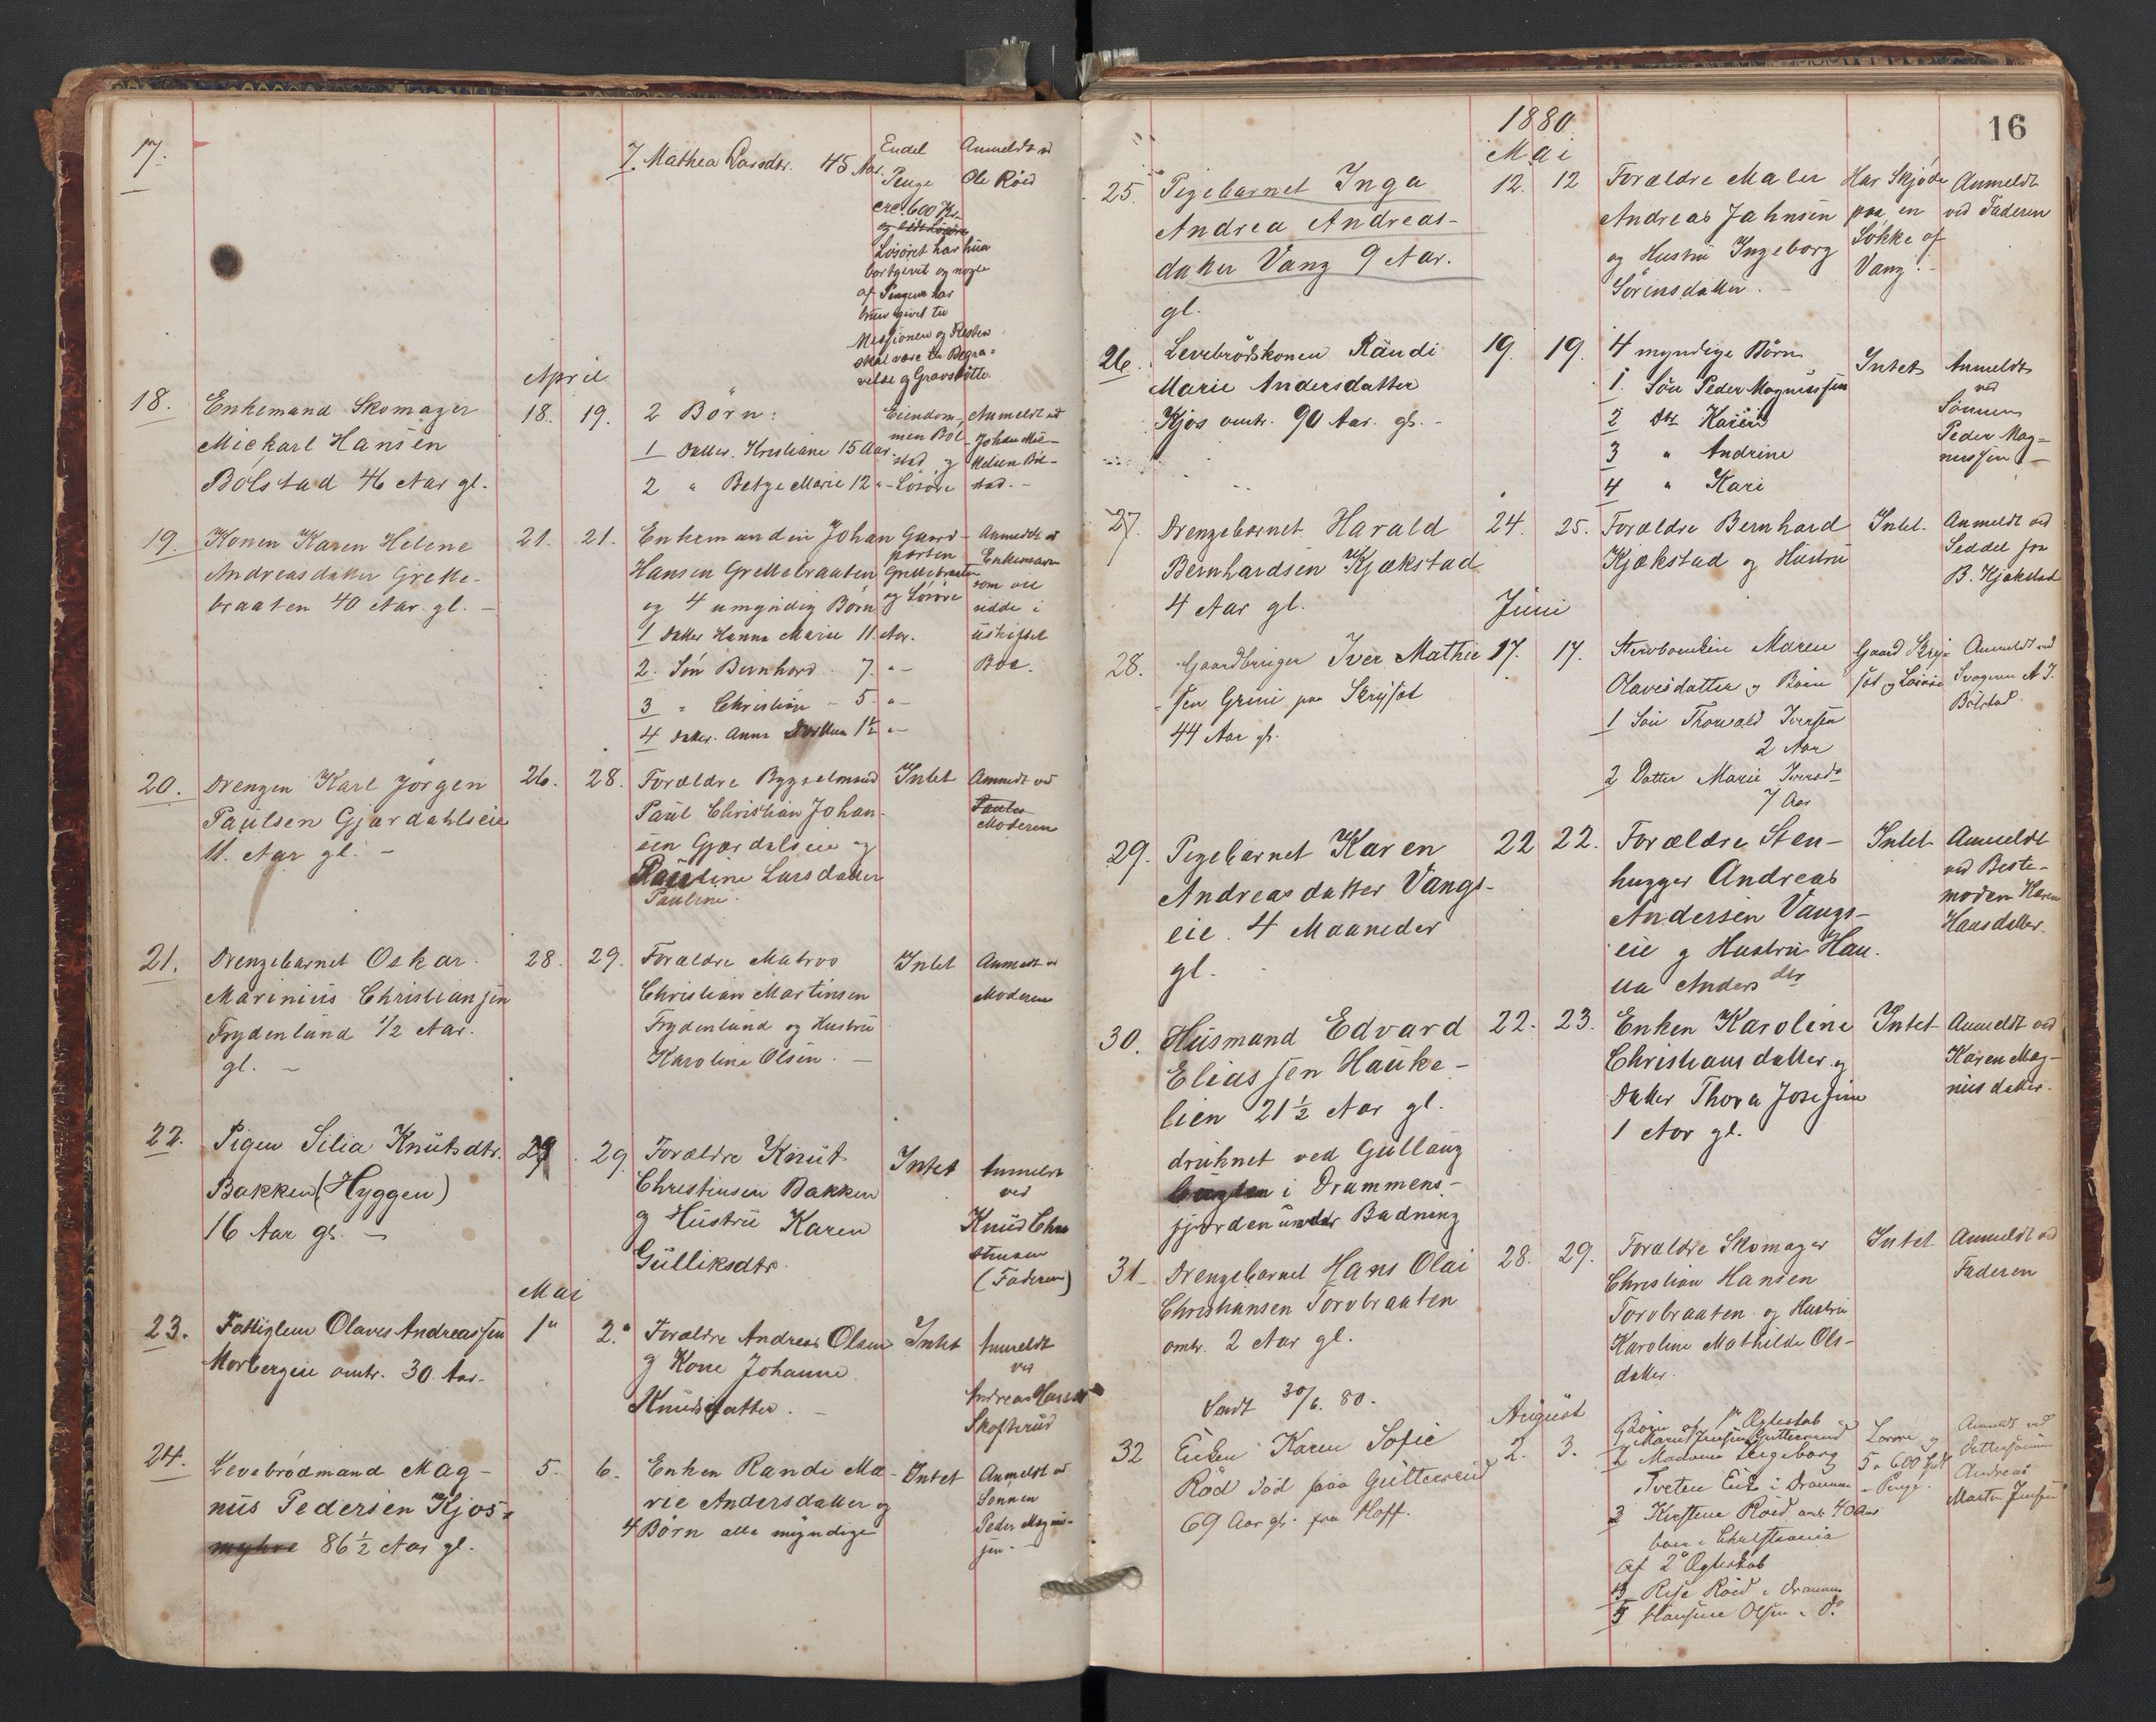 17.
7. Mathea Larsdtr. 45 Aar.
Endel
Penge
crc. 600 Kr.
Løsøret har hun
bortgivet og nogle
af Pengene har
hun givet til
Missionen og Resten
skal være til Begra-
velse og Gravstøtte.
Anmeldt v
Ole Røed
April
18.
Enkemand Skomager
Mickarl Hansen
Bølstad 46 Aar gl.
18. 19.
2 Børn:
1 Datter. Kristiane 15 Aar.
2 " Betze Marie 12 "
Eiendom-
men Bøl-
stad og
Løsøre
Anmeldt ved
Johan Mic-
kelsen Bøl-
stad. -
19.
Konen Karen Helene
Andreasdatter Grette-
braaten 40 Aar gl. -
21. 21.
Enkemanden Johan
Hansen Grettebraaten
og 4 umyndig Børn
1 Datter Hanna Marie 11. Aar.
2. Søn Bernhard. 7. "-
3 " Christian - 5. "-
4 Datter. Anna Dorthea 1½ "-
Gaard-
parten
Grettebraaten
og Løsøre
Anmeldt v
Enkemann
som vil
sidde i
uskiftet
Boe.
20.
Drengen Karl Jørgen
Paulsen Gjærdahlseie
11. Aar gl. -
26. 28.
Forældre Bygselmand
Paul Christian Johan-
sen Gjærdalseie og
Pauline Larsdatter
Pauline.
Intet
Anmeldt ved
Moderen
21.
Drengebarnet Oskar
Marinius Christiansen
Frydenlund ½ Aar.
gl. -
28. 29.
Forældre Matros
Christian Martinsen
Frydenlund og Hustru
Karoline Olsen. -
Intet
Anmeldt v
Moderen
22.
Pigen Silia Knutsdtr.
Bakken (Hyggen)
16 Aar gl. -
29. 29
Forældre Knut
Christensen Bakken
og Hustru Karen
Gulliksdtr.
Intet
Anmeldt
ved
Knud Chri
stensen
(Faderen)
Mai
23.
Fattiglem Olaves Andreassen
Morbergeie omtr. 30. Aar.
1" 2."
Forældre Andreas Olsen
og Kone Johanne
Knudsdatter. -
Intet
Anmeldt
ved
Andreas Hansen
Skofterud
24.
Levebrødmand Mag-
nus Pedersen Kjos-
myhre 86½ Aar gl.
5. 6.
Enken Randi Ma-
rie Andersdatter og
4 Børn alle myndige
Intet
Anmeldt v
Sønnen
Peder Magnu-
sen -
16
1880.
Mai
25.
Pigebarnet Inga
Andrea Andreas-
datter Vang 9 Aar.
gl.
12. 12
Forældre Maler
Andreas Jahnsen
og Hustru Ingeborg
Sørensdatter. -
Har Skjøde
paa en
Løkke af
Vang. -
Anmeldt
ved Faderen
26.
Levebrødskonen Randi
Marie Andersdatter
Kjos omtr. 90 Aar. gl. -
19. 19.
4 myndige Børn
1. Søn Peder Magnussen
2 Dtr Karen
3 " Andrine
4 " Kari
Intet
Anmeldt
ved
Sønnen
Peder Mag-
nussen -
27.
Drengebarnet Harald
Bernhardsen Kjækstad
4 Aar gl.
24. 25.
Forældre Bernhard
Kjækstad og Hustru
Intet.
Anmeldt ved
Seddel fra
B. Kjækstad
Juni
28.
Gaardbruger Iver Mathie
sen Grini paa Skryset
44 Aar gl.
17. 17.
Maren
Olavesdatter og Børn
1 Søn Thorvald Iversen
2 Aar
2 Datter Marie Iversd
7 Aar
Gaard Skry-
set og Løsøre
Anmeldt ved
Svogeren A J.
Bølstad.
29.
Pigebarnet Karen
Andreasdatter Vangs-
eie. 4 Maaneder
gl.
22 22.
Forældre Sten-
hugger Andreas
Andersen Vangs-
eie og Hustru Han-
na Anders dtr
Intet
Anmeldt
ved Beste-
moderen Karen
Hansdatter.
30.
Husmand Edvard
Eliassen Hauke-
lien 21½ Aar gl.
druknet ved Gullaug
bugten i Drammens-
fjorden under Badning
22. 23.
Enken Karoline
Christiansdatter og
Datter Thora Josefine
1 Aar gl.
Intet
Anmeldt ved
Karen Mag-
nusdatter.
31.
Drengebarnet Hans Olai
Christiansen Torvbraaten
omtr. 2 Aar gl.
28. 29.
Forældre Skomager
Christian Hansen
Torvbraaten og Hustru
Karoline Mathilde Ols-
datter.
Intet
Anmeldt ved
Faderen
Sendt 30/6. 80.
August
32
Enken Karen Sofie
Röd död paa Gutterud
69 Aar gl. fra Hoff.
2. 3.
Børn af 1ste Ægteskab
2 Madame Ingeborg
Tveten Enke i Drammen
3 Kirstine Röed omtr 40 Aar
boer i Christiania
Af 2 Ægteskab
Röed i Drammen
5 Hansine Olsen i do.
Løsøre og
5 a 600 Spdl
Penge.
Anmeldt ved
Dattersønnen
Andreas
Martin Jensen